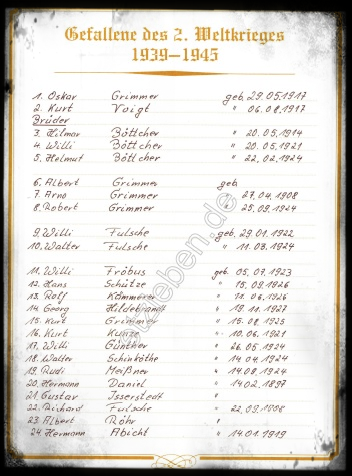 Gefallene des 2. Weltkrieges
1939–1945
1. Oskar Grimmer geb. 29.05.1917
2. Kurt Voigt " 06.08.1917
Brüder
3. Hilmar Böttcher " 20.05.1914
4. Willi Böttcher " 20.05.1921
5. Helmut Böttcher " 22.02.1924
6. Albert Grimmer geb.
7. Arno Grimmer " 27.04.1908
8. Robert Grimmer " 25.09.1924
9. Willi Fulsche geb. 29.01.1922
10. Walter Fulsche " 11.08.1924
11. Willi Fröbus geb. 05.07.1923
12. Hans Schütze " 15.09.1926
13. Rolf Kämmerer " 11.06.1926
14. Georg Hildebrandt " 19.11.1927
15. Kurt Grimmer " 15.08.1925
16. Kurt Kunze " 10.06.1921
17. Willi Günther " 26.05.1924
18. Walter Schinköthe " 14.04.1924
19. Rudi Meißner " 14.08.1924
20. Hermann Daniel " 14.02.1897
21. Gustav Isserstedt "
22. Richard Fulsche " 22.09.1906
23. Albert Röhr "
24. Hermann Abicht " 14.01.1919